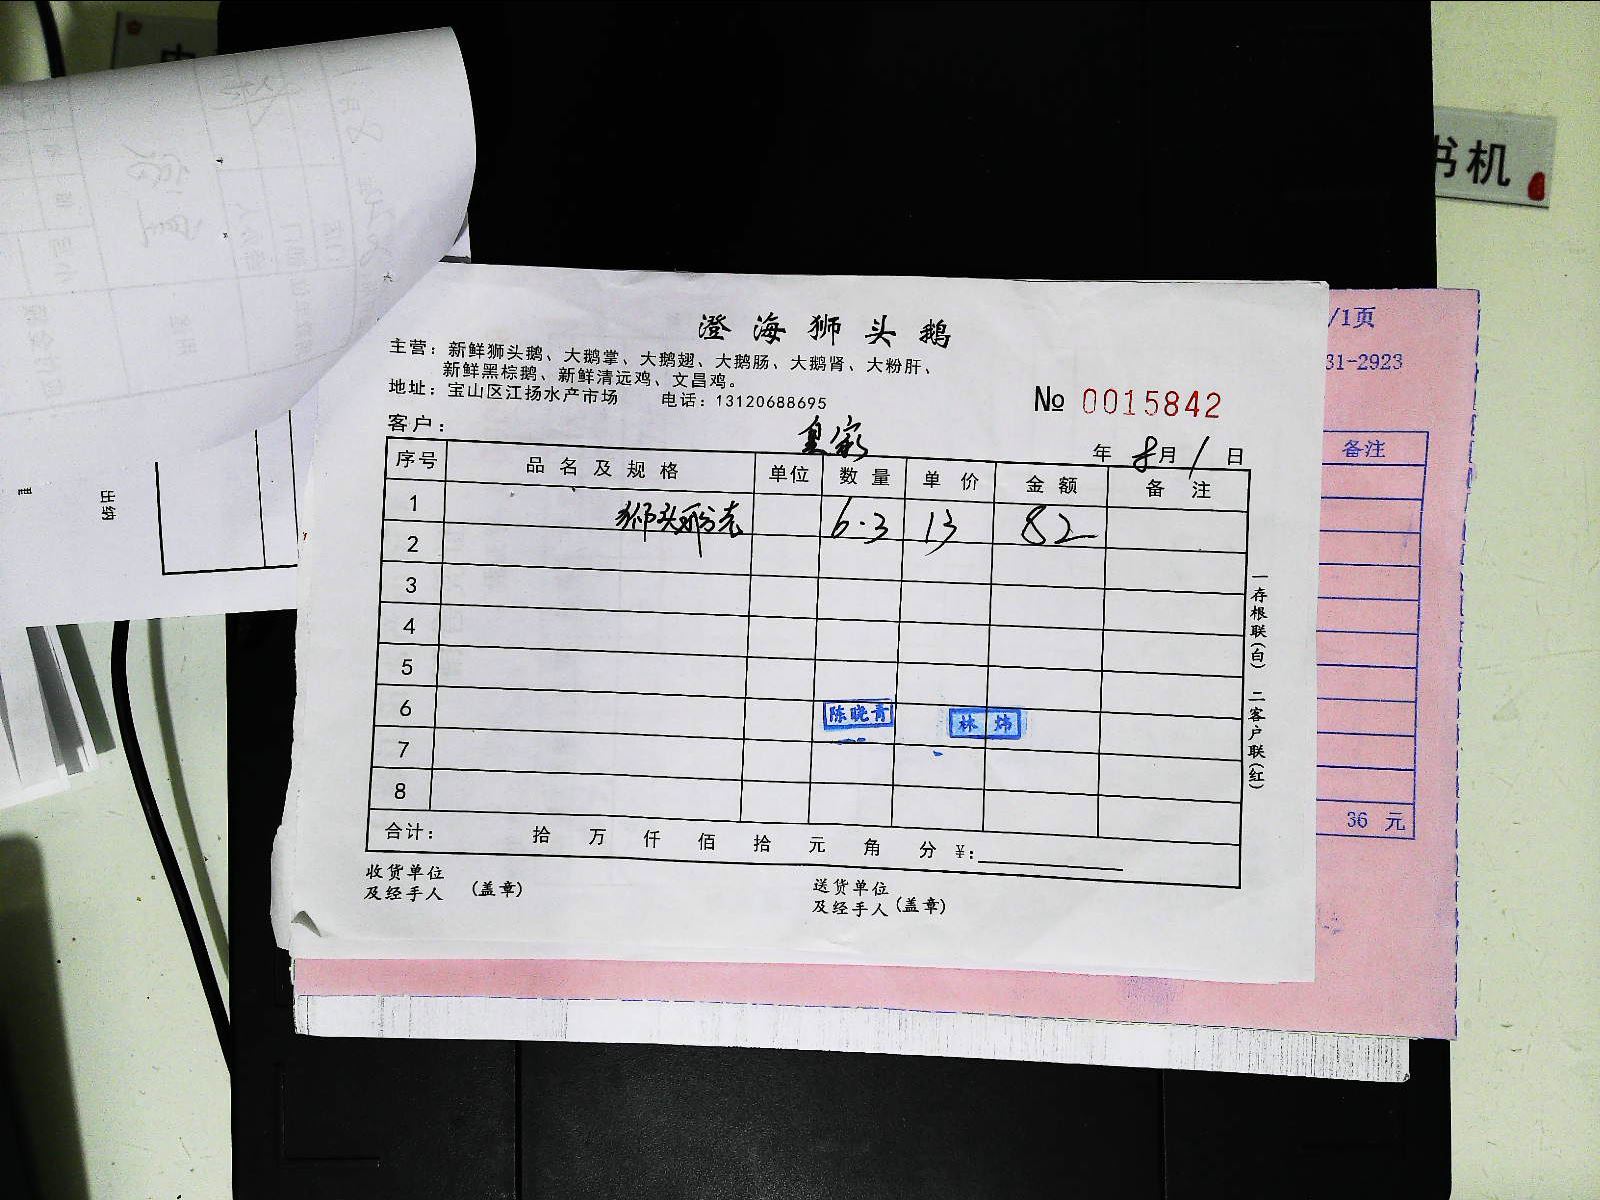 书机
/1页
31-2923
备注
36 元
出纳
澄海狮头鹅
主营：新鲜狮头鹅、大鹅掌、大鹅翅、大鹅肠、大鹅肾、大粉肝、
新鲜黑棕鹅、新鲜清远鸡、文昌鸡。
地址：宝山区江扬水产市场 电话：13120688695
№ 0015842
客户： 皇家 年 8月 1 日
序号 品名及规格 单位 数量 单价 金额 备注
1 狮头 6.3 13 82
2
3
4
5
6 陈晓青 林炜
7
8
合计： 拾 万 仟 佰 拾 元 角 分 ¥:
收货单位
及经手人 (盖章)
送货单位
及经手人(盖章)
一存根联(白) 二客户联(红)